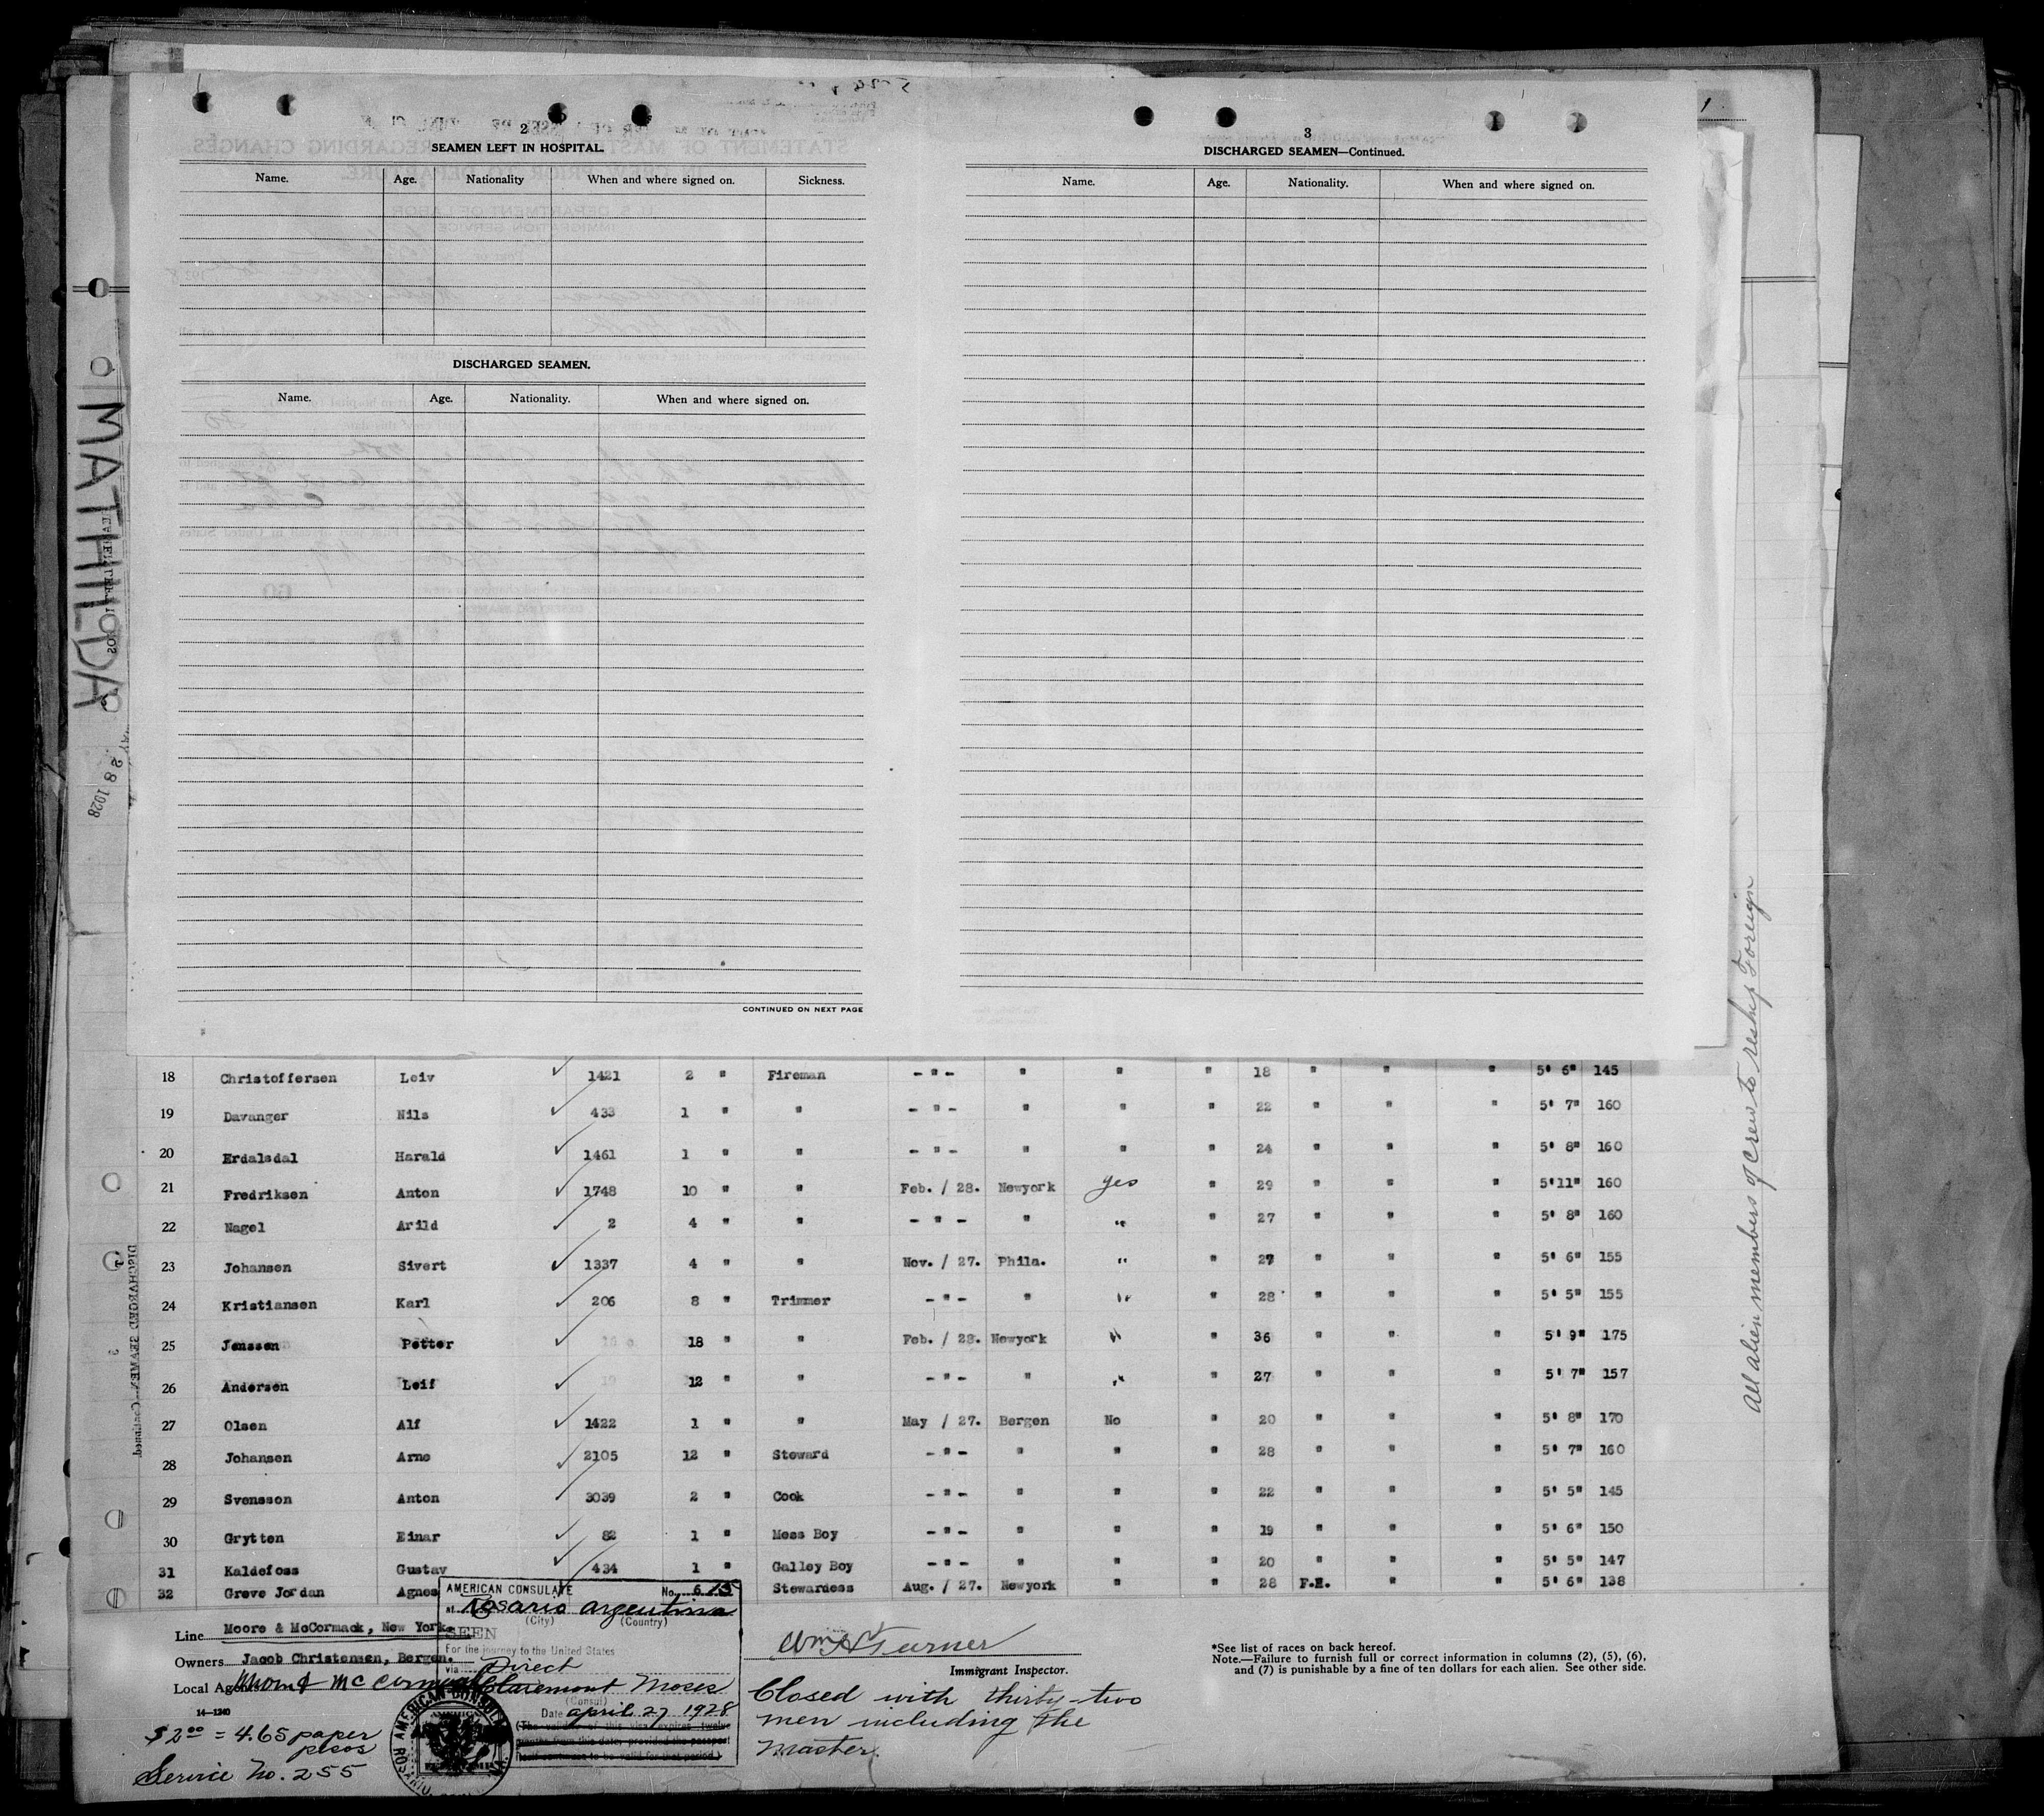 2
SEAMEN LEFT IN HOSPITAL.
Name. Age. Nationality When and where signed on. Sickness.
DISCHARGED SEAMEN.
Name. Age. Nationality. When and where signed on.
CONTINUED ON NEXT PAGE
3
DISCHARGED SEAMEN—Continued.
Name. Age. Nationality. When and where signed on.
1
MATHILDA
28 1928
DISCHARGED SEAMEN—Continued.
All alien members of crew to reship Foreign
18 Christoffersen Leiv ✓ 1421 2 " Fireman - " - " " " 18 " " " 5' 6" 145
19 Davanger Nils ✓ 433 1 " " - " - " " " 22 " " " 5' 7" 160
20 Erdalsdal Harald ✓ 1461 1 " " - " - " " " 24 " " " 5' 8" 160
21 Fredriksen Anton ✓ 1748 10 " " Feb. / 28. Newyork yes " 29 " " " 5'11" 160
22 Nagel Arild ✓ 2 4 " " - " - " " " 27 " " " 5' 8" 160
23 Johansen Sivert ✓ 1337 4 " " Nov. / 27. Phila. " " 27 " " " 5' 6" 155
24 Kristiansen Karl ✓ 206 8 " Trimmer - " - " " " 28 " " " 5' 5" 155
25 Jenssen Petter ✓ 18 " " Feb. / 28. Newyork " " 36 " " " 5' 9" 175
26 Andersen Leif ✓ 12 " " - " - " " " 27 " " " 5' 7" 157
27 Olsen Alf ✓ 1422 1 " " May / 27. Bergen No " 20 " " " 5' 8" 170
28 Johansen Arne ✓ 2105 12 " Steward - " - " " " 28 " " " 5' 7" 160
29 Svensson Anton ✓ 3039 2 " Cook - " - " " " 22 " " " 5' 5" 145
30 Grytten Einar ✓ 82 1 " Mess Boy - " - " " " 19 " " " 5' 6" 150
31 Kaldefoss Gustav ✓ 434 1 " Galley Boy - " - " " " 20 " " " 5' 5" 147
32 Greve Jordan Agnes Stewardess Aug. / 27. Newyork " " 28 F.E. " " 5' 6" 138
Line Moore & McCormack, New York.
Owners Jacob Christensen, Bergen.
Local Agents Moore & McCormack
14—1240
$2.00 = 4.65 paper
pesos
Service No. 255
AMERICAN CONSULATE No. 615
at Rosario Argentina
(City) (Country)
SEEN
For the journey to the United States
via Direct
Claremont Moses
(Consul)
Date april 27 1928
(The validity of this visa expires twelve
months from this date, provided the passport
itself continues to be valid for that period.)
AMERICAN CONSULATE
ROSARIO
Wm A Turner
Immigrant Inspector.
Closed with thirty-two
men including the
Master.
*See list of races on back hereof.
Note.—Failure to furnish full or correct information in columns (2), (5), (6),
and (7) is punishable by a fine of ten dollars for each alien. See other side.